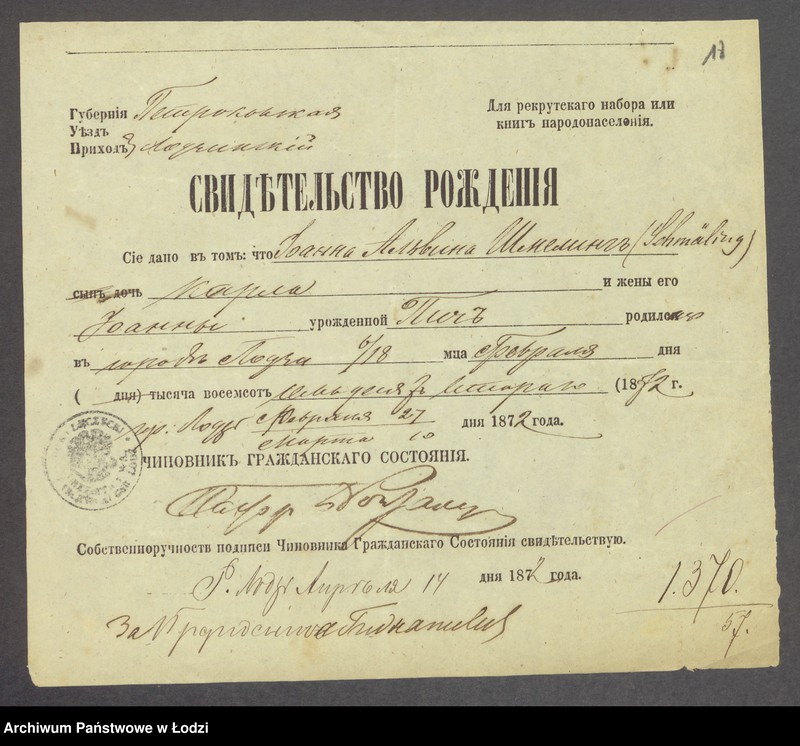 18
Губернія Петроковская
Для рекрутскаго набора или
Уѣздъ
книгъ народонаселенія.
Приходъ Лодзинскій
СВИДѢТЕЛЬСТВО РОЖДЕНІЯ
Сіе дано въ томъ: что Іоанна Альвина Шмелингъ (Schmäling)
сынъ дочь Карла и жены его
Іоанны урожденной Тичъ родилась
въ городѣ Лодзи 6/18 мца Февраля дня
( дня) тысяча восемсот семьдесятъ втораго (1872 г.
гор. Лодзь Февраля 27 дня 1872 года.
Марта 10
ЧИНОВНИКЪ ГРАЖДАНСКАГО СОСТОЯНІЯ.
Собственноручность подписи Чиновника Гражданскаго Состоянія свидѣтельствую.
Г. Лодзь Апрѣля 14 дня 1872 года.
1.370.
57.
За Президента
Archiwum Państwowe w Łodzi